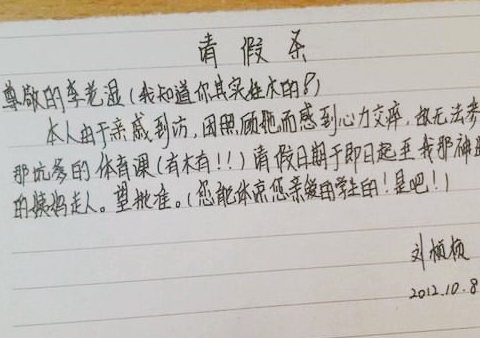 请假条
尊敬的李老湿(我知道你其实姓木的?)
本人由于亲戚到访,因照顾她而感到心力交瘁,故无法参
那坑爹的体育课(有木有!!)请假日期于即日起至我那神
的姨妈走人。望批准。(您能体谅您亲爱的学生的!是吧!)
刘桢桢
2012.10.8